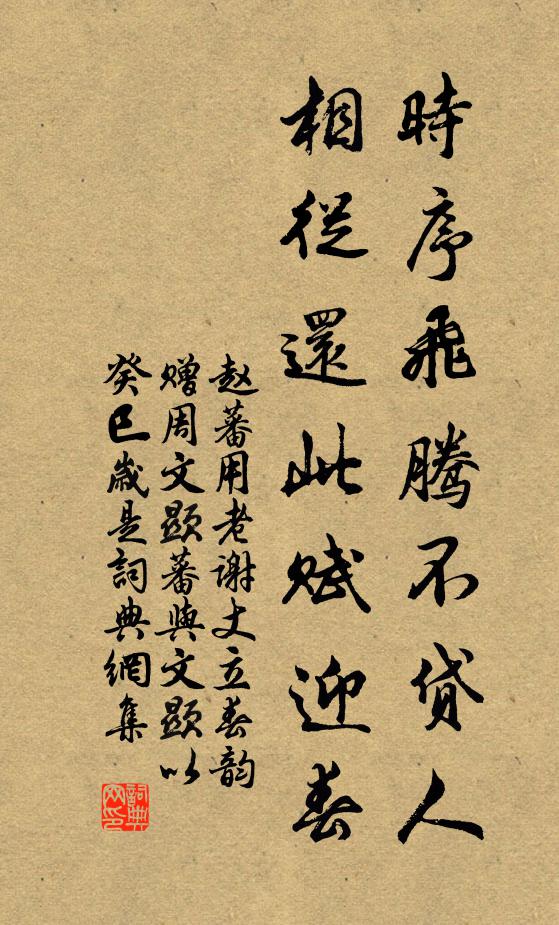 時序飛騰不貸人
相從還此賦迎春
赵蕃用老謝丈立春韵
赠周文顯蕃與文顯以
癸巳歲是詞典網集
詞典
网印